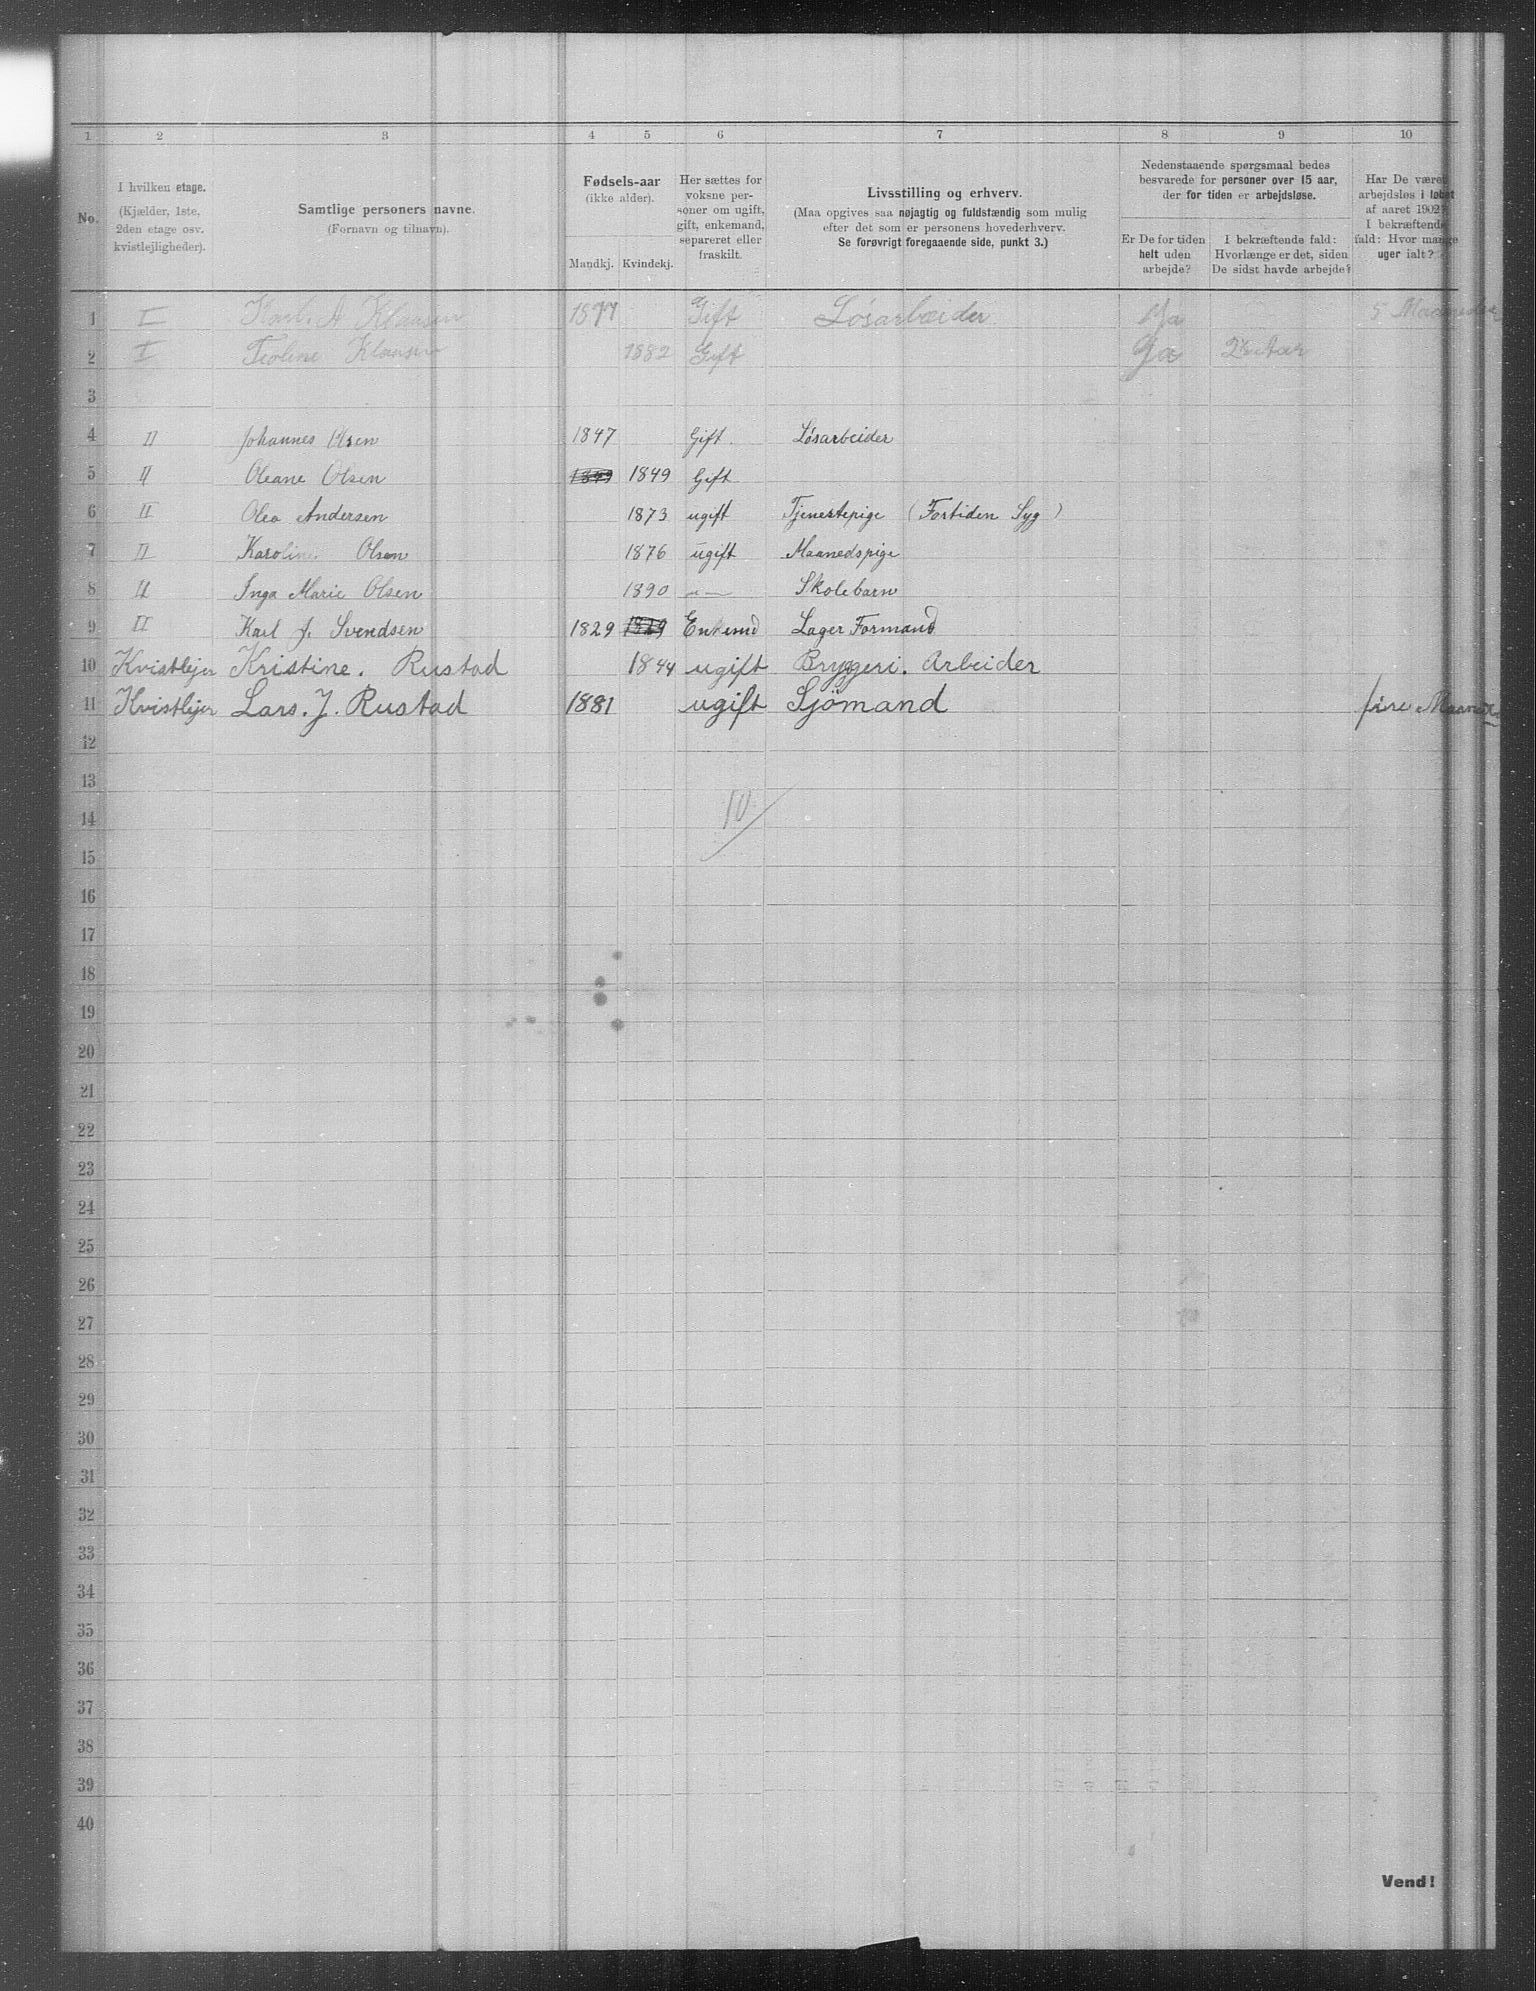 1 2 3 4 5 6 7 8 9 10
No.
I hvilken etage.
(Kjælder, 1ste,
2den etage osv.
kvistlejligheder).
Samtlige personers navne.
(Fornavn og tilnavn).
Fødsels-aar
(ikke alder).
Mandkj. Kvindekj.
Her sættes for
voksne per-
soner om ugift,
gift, enkemand,
separeret eller
fraskilt.
Livsstilling og erhverv.
(Maa opgives saa nøjagtig og fuldstændig som mulig
efter det som er personens hovederhverv.
Se forøvrigt foregaaende side, punkt 3.)
Nedenstaaende spørgsmaal bedes
besvarede for personer over 15 aar,
der for tiden er arbejdsløse.
Er De for tiden
helt uden
arbejde?
I bekræftende fald:
Hvorlænge er det, siden
De sidst havde arbejde?
Har De været
arbejdsløs i løbet
af aaret 1902?
I bekræftende
fald: Hvor mange
uger ialt?
1 I Karl. A Klausen 1877 Gift Løsarbeider Ja 5 Maaneder
2 I Teoline Klausen 1882 Gift Ja 2 Aar
3
4 II Johannes Olsen 1847 Gift. Løsarbeider
5 II Oleane Olsen 1849 1849 Gift
6 II Olea Andersen 1873 ugift Tjenestepige (Fortiden Syg)
7 II Karoline Olsen 1876 ugift Maanedspige
8 II Inga Marie Olsen 1890 –"– Skolebarn
9 II Karl J. Svendsen 1829 1829 Enkemd Lager Formand
10 Kvistlejer Kristine. Rustad 1844 ugift Bryggeri. Arbeider
11 Kvistlejer Lars. J. Rustad 1881 ugift Sjömand fire Maaned
12
13
10/
14
15
16
17
18
19
20
21
22
23
24
25
26
27
28
29
30
31
32
33
34
35
36
37
38
39
40
Vend!